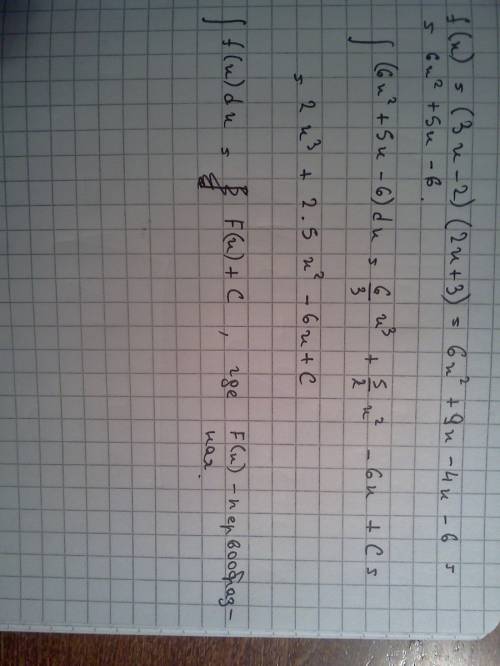 f(x) = (3x-2)(2x+3) = 6x² + 9x - 4x - 6 =
= 6x² + 5x - 6.
∫ (6x² + 5x - 6) dx = 6/3 x³ + 5/2 x² - 6x + C =
= 2x³ + 2.5x² - 6x + C
∫ f(x) dx = F(x) + C, где F(x) - первообраз-
ная.